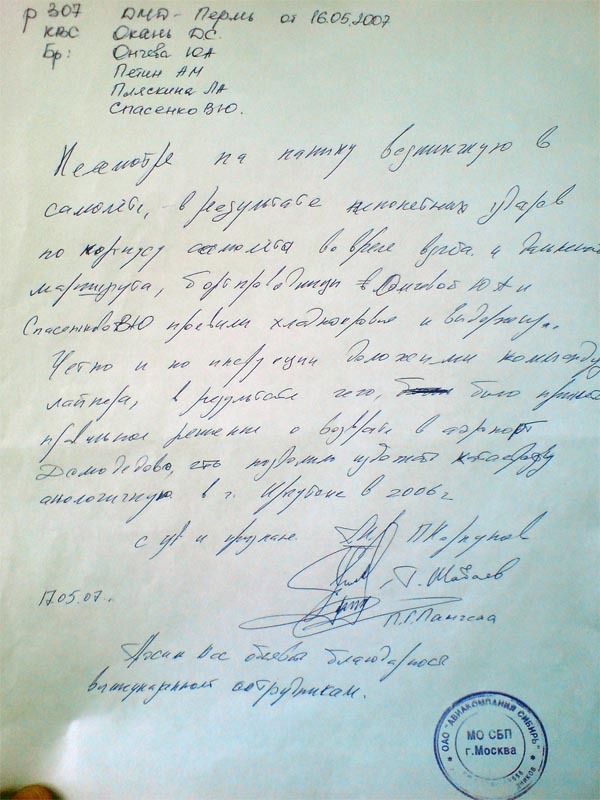 р 307 ДМД - Пермь от 16.05.2007
КВС Окань ДС.
Бр: Ончева ЮА
Петин АМ
Пляскина ЛА
Спасенко ВЮ.
Несмотря на панику возникшую в
самолёте, в результате непонятных ударов
по корпусу самолёта во время взлёта и
маршрута, бортпроводницы Онгевой ЮА и
Спасенково ВЮ проявили хладнокровие и выдержку..
Чётко и по инструкции доложили командиру
лайнера, в результате чего, было
правильное решение о возврате в аэропорт
Домодедово, что позволило избежать катастрофу
анологичную в г. Иркутске в 2006г
с ув и
17.05.07..
П.Г.
Просим Вас объявить благодарность
вышеуказанным сотрудникам.
ОАО "АВИАКОМПАНИЯ СИБИРЬ"
МО СБП
г.Москва